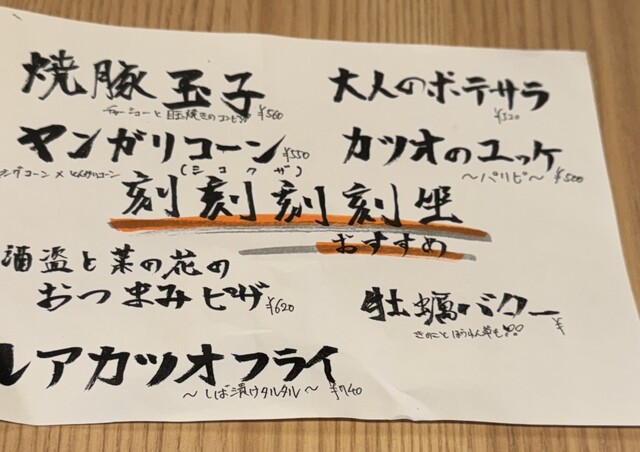 焼豚玉子
チャーシューと目玉焼きのコンビ!! ¥560
大人のポテサラ
¥520
ヤンガリコーン ¥550
ヤングコーン×とんがりコーン
カツオのユッケ
～パリピ～ ¥500
(シコクザ)
刻刻刻刻坐
おすすめ
酒盗と菜の花の
おつまみピザ ¥620
牡蠣バター ¥
きのことほうれん草も!!
レアカツオフライ
～しば漬けタルタル～ ¥740